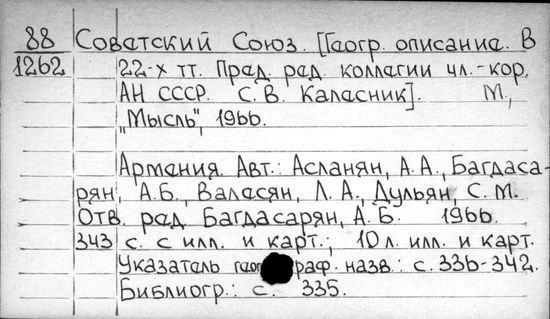 88 Советский Союз. [Геогр. описание. В
1262 22-х тт. Пред. ред. коллегии чл.-кор.
АН СССР. С. В. Калесник]. М.,
"Мысль", 1966.
Армения. Авт.: Асланян, А.А., Багдаса-
рян, А.Б., Валесян, Л.А., Дульян, С.М.
Отв. ред. Багдасарян, А.Б. 1966.
343 с. с илл. и карт.; 10 л. илл. и карт.
Указатель геог раф. назв.: с. 336-342.
Библиогр.: с. 335.